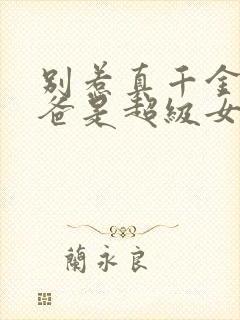 别惹真千金
爸是超级女
蘭永良